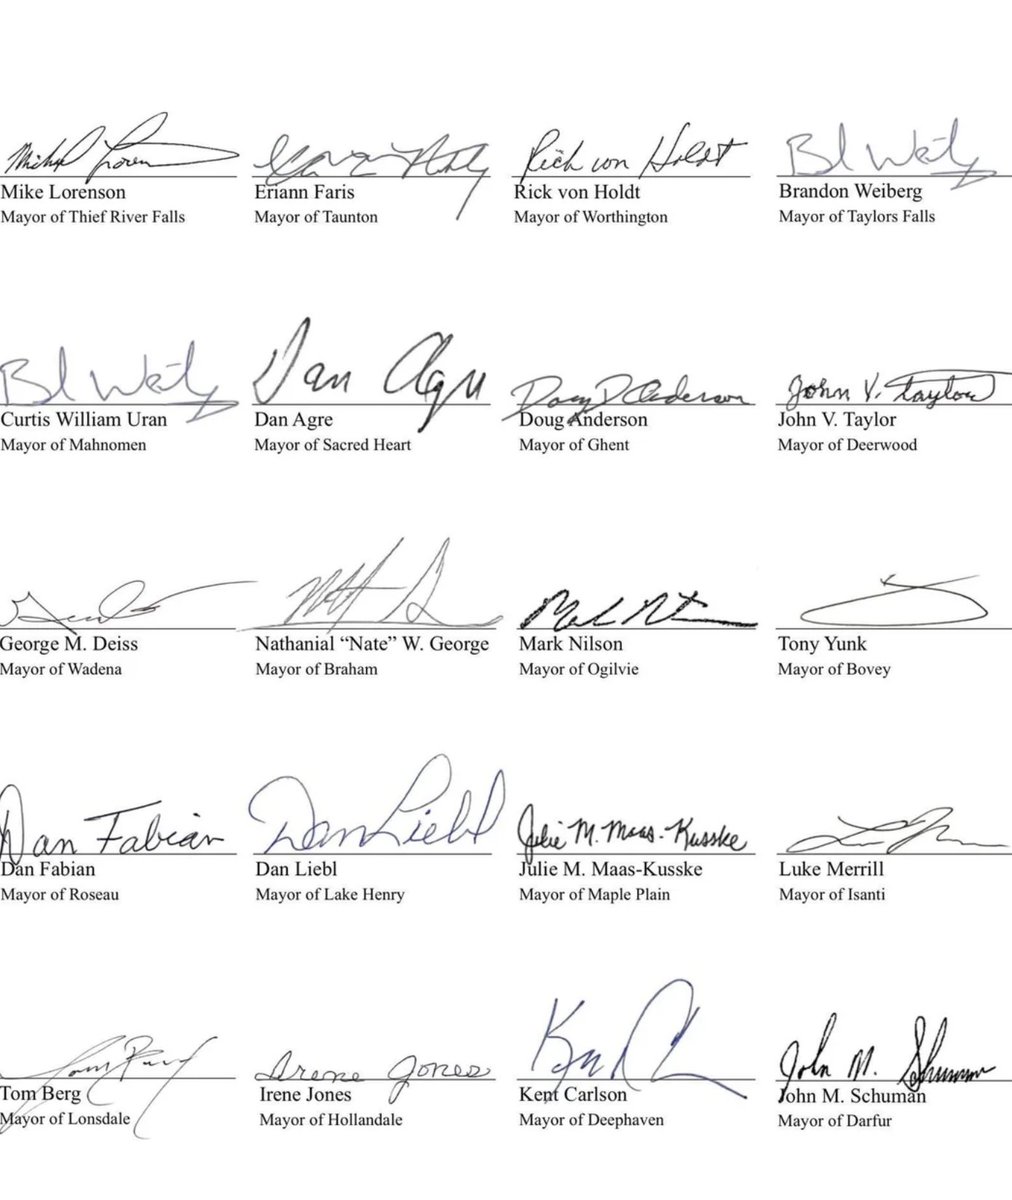 Michael Loren
Mike Lorenson
Mayor of Thief River Falls
Eriann Faris
Mayor of Taunton
Rich von Holdt
Rick von Holdt
Mayor of Worthington
Brandon Weiberg
Mayor of Taylors Falls
Curtis William Uran
Mayor of Mahnomen
Dan Agre
Dan Agre
Mayor of Sacred Heart
Doug Anderson
Doug Anderson
Mayor of Ghent
John V. Taylor
John V. Taylor
Mayor of Deerwood
George M. Deiss
Mayor of Wadena
Nathanial “Nate” W. George
Mayor of Braham
Mark Nilson
Mayor of Ogilvie
Tony Yunk
Mayor of Bovey
Dan Fabian
Dan Fabian
Mayor of Roseau
Dan Liebl
Dan Liebl
Mayor of Lake Henry
Julie M. Maas-Kusske
Julie M. Maas-Kusske
Mayor of Maple Plain
Luke Merrill
Mayor of Isanti
Tom Berg
Mayor of Lonsdale
Irene Jones
Irene Jones
Mayor of Hollandale
Kent Carlson
Mayor of Deephaven
John M. Shuman
John M. Schuman
Mayor of Darfur